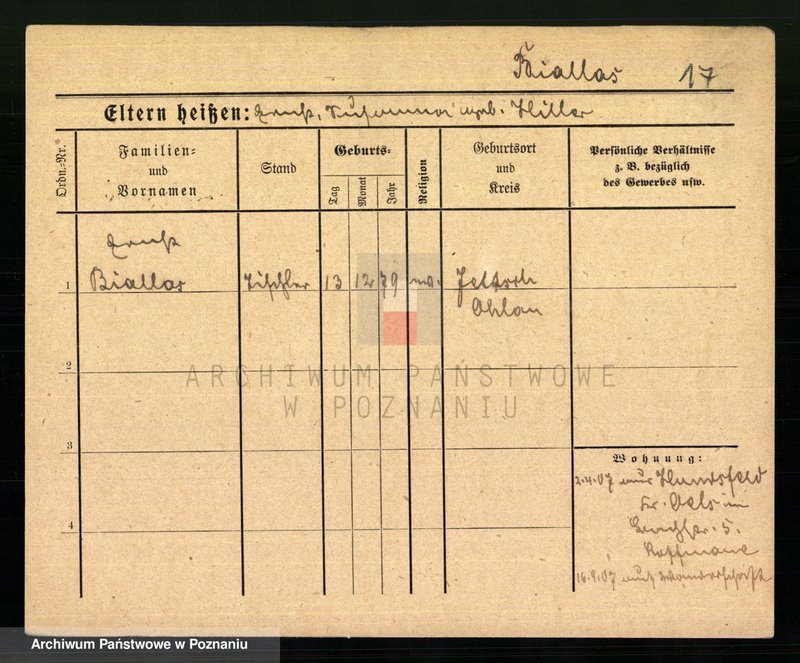 Biallas 17
Eltern heißen: Ernst, Susanna geb. Hiller
Ordn.-Nr.
Familien-
und
Vornamen
Stand
Geburts-
Tag
Monat
Jahr
Religion
Geburtsort
und
Kreis
Persönliche Verhältnisse
z. B. bezüglich
des Gewerbes usw.
Ernst
1 Biallas Tischler 13 12 79 ev.
Ohlau
2
ARCHIWUM PAŃSTWOWE
W POZNANIU
3
4
Wohnung:
2.4.07 aus Hundsfeld
Kr. Oels im
5.
Hoffmann
16.9.07 auf Wanderschaft
Archiwum Państwowe w Poznaniu